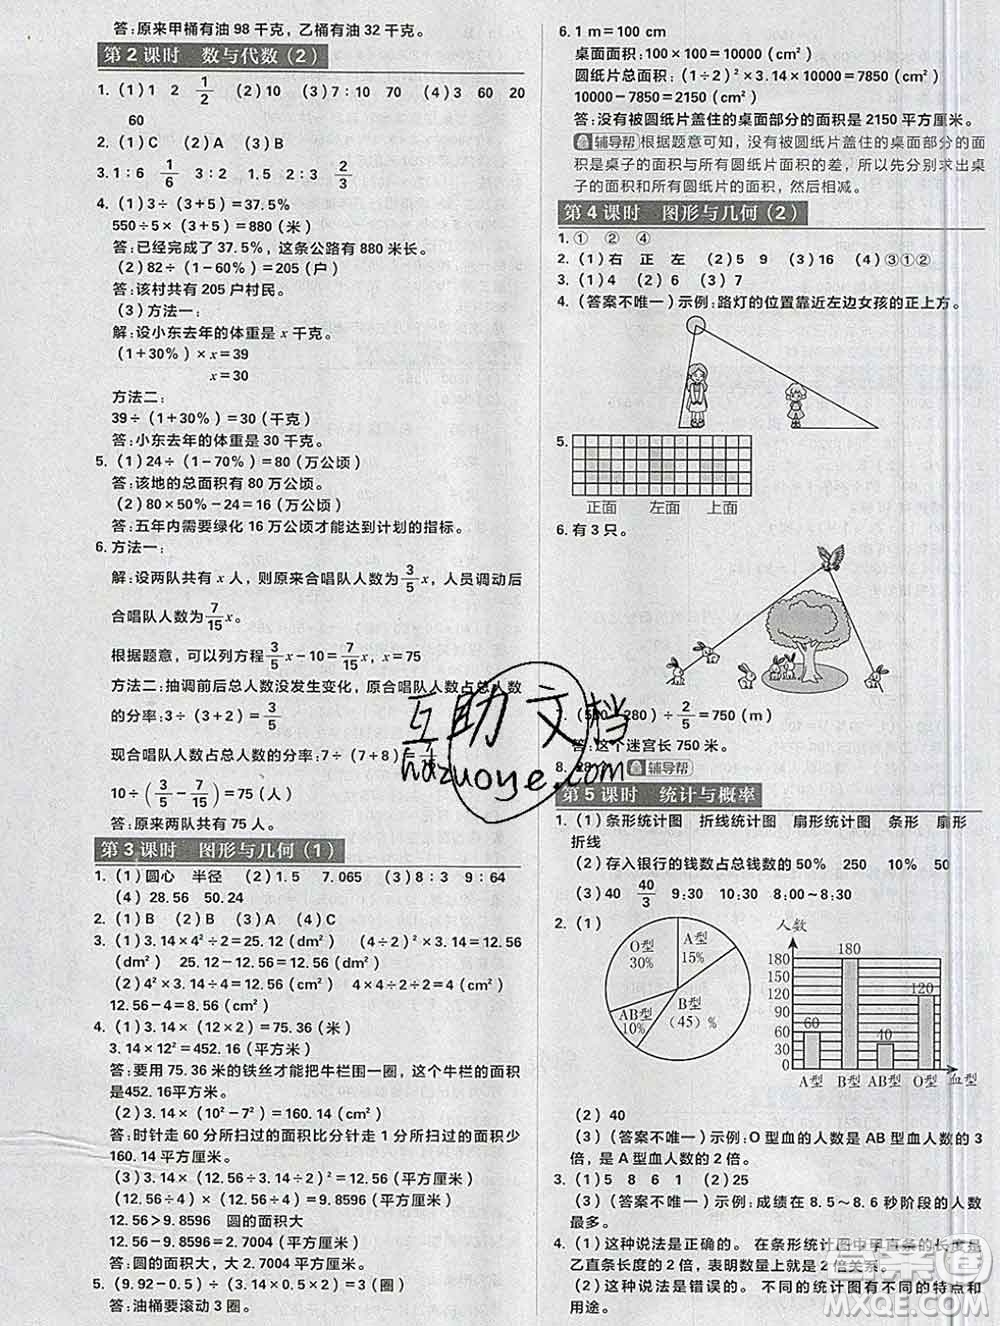 答:原来甲桶有油 98 千克,乙桶有油 32 千克。
第 2 课时 数与代数(2)
1. (1)1 2 1/2 (2)10 (3)7∶10 70 (4)3 60 20
60
2. (1)C (2)A (3)B
3. 1∶6 1/6 3∶2 1.5 2∶3 2/3
4. (1)3÷(3+5)=37.5%
550÷5×(3+5)=880(米)
答:已经完成了 37.5%,这条公路有 880 米长。
(2)82÷(1-60%)=205(户)
答:该村共有 205 户村民。
(3)方法一:
解:设小东去年的体重是 x 千克。
(1+30%)×x=39
x=30
方法二:
39÷(1+30%)=30(千克)
答:小东去年的体重是 30 千克。
5. (1)24÷(1-70%)=80(万公顷)
答:该地的总面积有 80 万公顷。
(2)80×50%-24=16(万公顷)
答:五年内需要绿化 16 万公顷才能达到计划的指标。
6. 方法一:
解:设两队共有 x 人,则原来合唱队人数为 3/5 x,人员调动后
合唱队人数为 7/15 x。
根据题意,可以列方程 3/5 x-10=7/15 x,x=75
方法二:抽调前后总人数没发生变化,原合唱队人数占总人数
的分率:3÷(3+2)=3/5
现合唱队人数占总人数的分率:7÷(7+8)=
10÷(3/5-7/15)=75(人)
答:原来两队共有 75 人。
第 3 课时 图形与几何(1)
1. (1)圆心 半径 (2)1.5 7.065 (3)8∶3 9∶64
(4) 28.26 50.24
2. (1)B (2)B (3)A (4)C
3. (1)3.14×4²÷2=25.12(dm²) (4÷2)²×3.14=12.56
(dm²) 25.12-12.56=12.56(dm²)
(2)(4÷2)²×3.14=12.56(cm²) 4×4÷2=4(cm²)
12.56-4=8.56(cm²)
4. (1)3.14×(12×2)=75.36(米)
3.14×12²=452.16(平方米)
答:要用 75.36 米的铁丝才能把牛栏围一圈,这个牛栏的面积
是452.16平方米。
(2)3.14×(10²-7²)=160.14(cm²)
答:时针走 60 分所扫过的面积比分针走 1 分所扫过的面积少
160.14 平方厘米。
(3)3.14×(12.56÷3.14÷2)²=12.56(平方米)
(12.56÷4)×(12.56÷4)=9.8596(平方米)
12.56>9.8596 圆的面积大
12.56-9.8596=2.7004(平方米)
答:圆的面积大,大 2.7004 平方米。
5. (9.92-0.5)÷(3.14×1)=3(圈)
答:油桶要滚动 3 圈。
6. 1 m=100 cm
桌面面积:100×100=10000(cm²)
圆纸片总面积:(1÷2)²×3.14×10000=7850(cm²)
10000-7850=2150(cm²)
答:没有被圆纸片盖住的桌面部分的面积是 2150 平方厘米。
辅导帮 根据题意可知,没有被圆纸片盖住的桌面部分的面
积是桌子的面积与所有圆纸片面积的差,所以先分别求出桌
子的面积和所有圆纸片的面积,然后相减。
第 4 课时 图形与几何(2)
1. ① ② ④
2. (1)右 正 左 (2)5 9 (3)16 (4)③①②
3. (1)4 (2)6 (3)7
4. (答案不唯一)示例:路灯的位置靠近左边女孩的正上方。
5.
正面 左面 上面
6. 有 3 只。
7. (580-280)÷2/5=750(m)
答:这个迷宫长 750 米。
8. 辅导帮
第 5 课时 统计与概率
1. (1)条形统计图 折线统计图 扇形统计图 条形 扇形
折线
(2)存入银行的钱数占总钱数的 50% 250 10% 50
(3)40 40/3 9:30 10:30 8:00~8:30
2. (1)
O型 30%
A型 15%
AB型 10%
B型 (45)%
人数
180
150
120
90
60
30
0
60 180 40 120
A型 B型 AB型 O型 血型
(2)40
(3)(答案不唯一)示例:O 型血的人数是 AB 型血人数的 3
倍,是 A 型血人数的 2 倍。
3. (1)5 8 6 1 (2)25
(3)(答案不唯一)示例:成绩在 8.5~8.6 秒阶段的人数
最多。
4. (1)这种说法是正确的。 在条形统计图中甲直条的长度是
乙直条长度的 2 倍,表明数量上就是 2 倍关系。
(2)这种说法是错误的。 不同的统计图有不同的特点和
用途。
互助文档
hdzuoye.com
答案圈
MXQE.COM